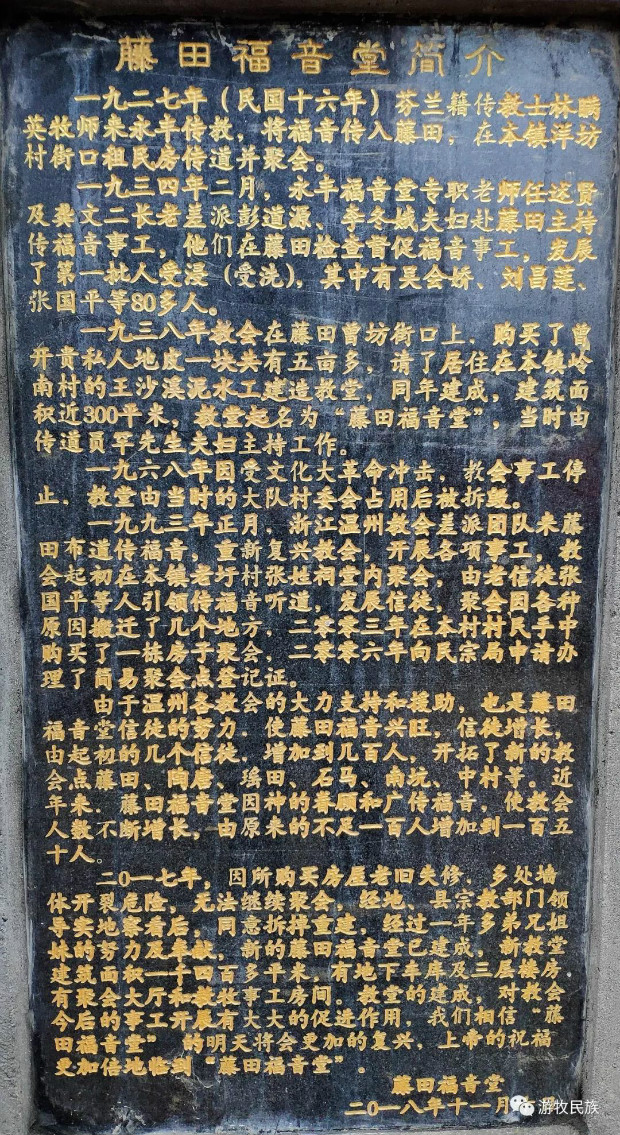 藤田福音堂简介
一九二七年（民国十六年）芬兰籍传教士林瞒
英牧师来永丰传教，将福音传入藤田，在本镇洋坊
村街口租民房传道并聚会。
一九三四年二月，永丰福音堂专职老师任述贤
及龚文二长老差派彭道源、李冬娥夫妇赴藤田主持
传福音事工，他们在藤田检查督促福音事工，发展
了第一批人受浸（受洗），其中有吴会娇、刘昌莲、
张国平等80多人。
一九三八年教会在藤田曾坊街口上，购买了曾
开贵私人地皮一块共有五亩多，请了居住在本镇岭
南村的王沙溪泥水工建造教堂，同年建成，建筑面
积近300平米，教堂起名为“藤田福音堂”，当时由
传道员罕先生夫妇主持工作。
一九六八年因受文化大革命冲击，教会事工停
止，教堂由当时的大队村委会占用后被拆毁。
一九九三年正月，浙江温州教会差派团队来藤
田布道传福音，重新复兴教会，开展各项事工，教
会起初在本镇老圩村张姓祠堂内聚会，由老信徒张
国平等人引领传福音听道，发展信徒，聚会因各种
原因搬迁了几个地方，二零零三年在本村村民手中
购买了一栋房子聚会，二零零六年向民宗局申请办
理了简易聚会点登记证。
由于温州各教会的大力支持和援助，也是藤田
福音堂信徒的努力，使藤田福音兴旺，信徒增长，
由起初的几个信徒，增加到几百人，开拓了新的教
会点藤田、陶唐、瑶田、石马、南坑、中村等。近
年来，藤田福音堂因神的眷顾和广传福音，使教会
人数不断增长，由原来的不足一百人增加到一百五
十人。
二0一七年，因所购买房屋老旧失修，多处墙
体开裂危险，无法继续聚会，经地、县宗教部门领
导实地察看后，同意拆掉重建，经过一年多弟兄姐
妹的努力及奉献，新的藤田福音堂已建成，新教堂
建筑面积一千四百多平米，有地下车库及三层楼房，
有聚会大厅和教牧事工房间。教堂的建成，对教会
今后的事工开展有大大的促进作用，我们相信“藤
田福音堂”的明天将会更加的复兴，上帝的祝福
更加倍地临到“藤田福音堂”。
藤田福音堂
二0一八年十一月
游牧民族